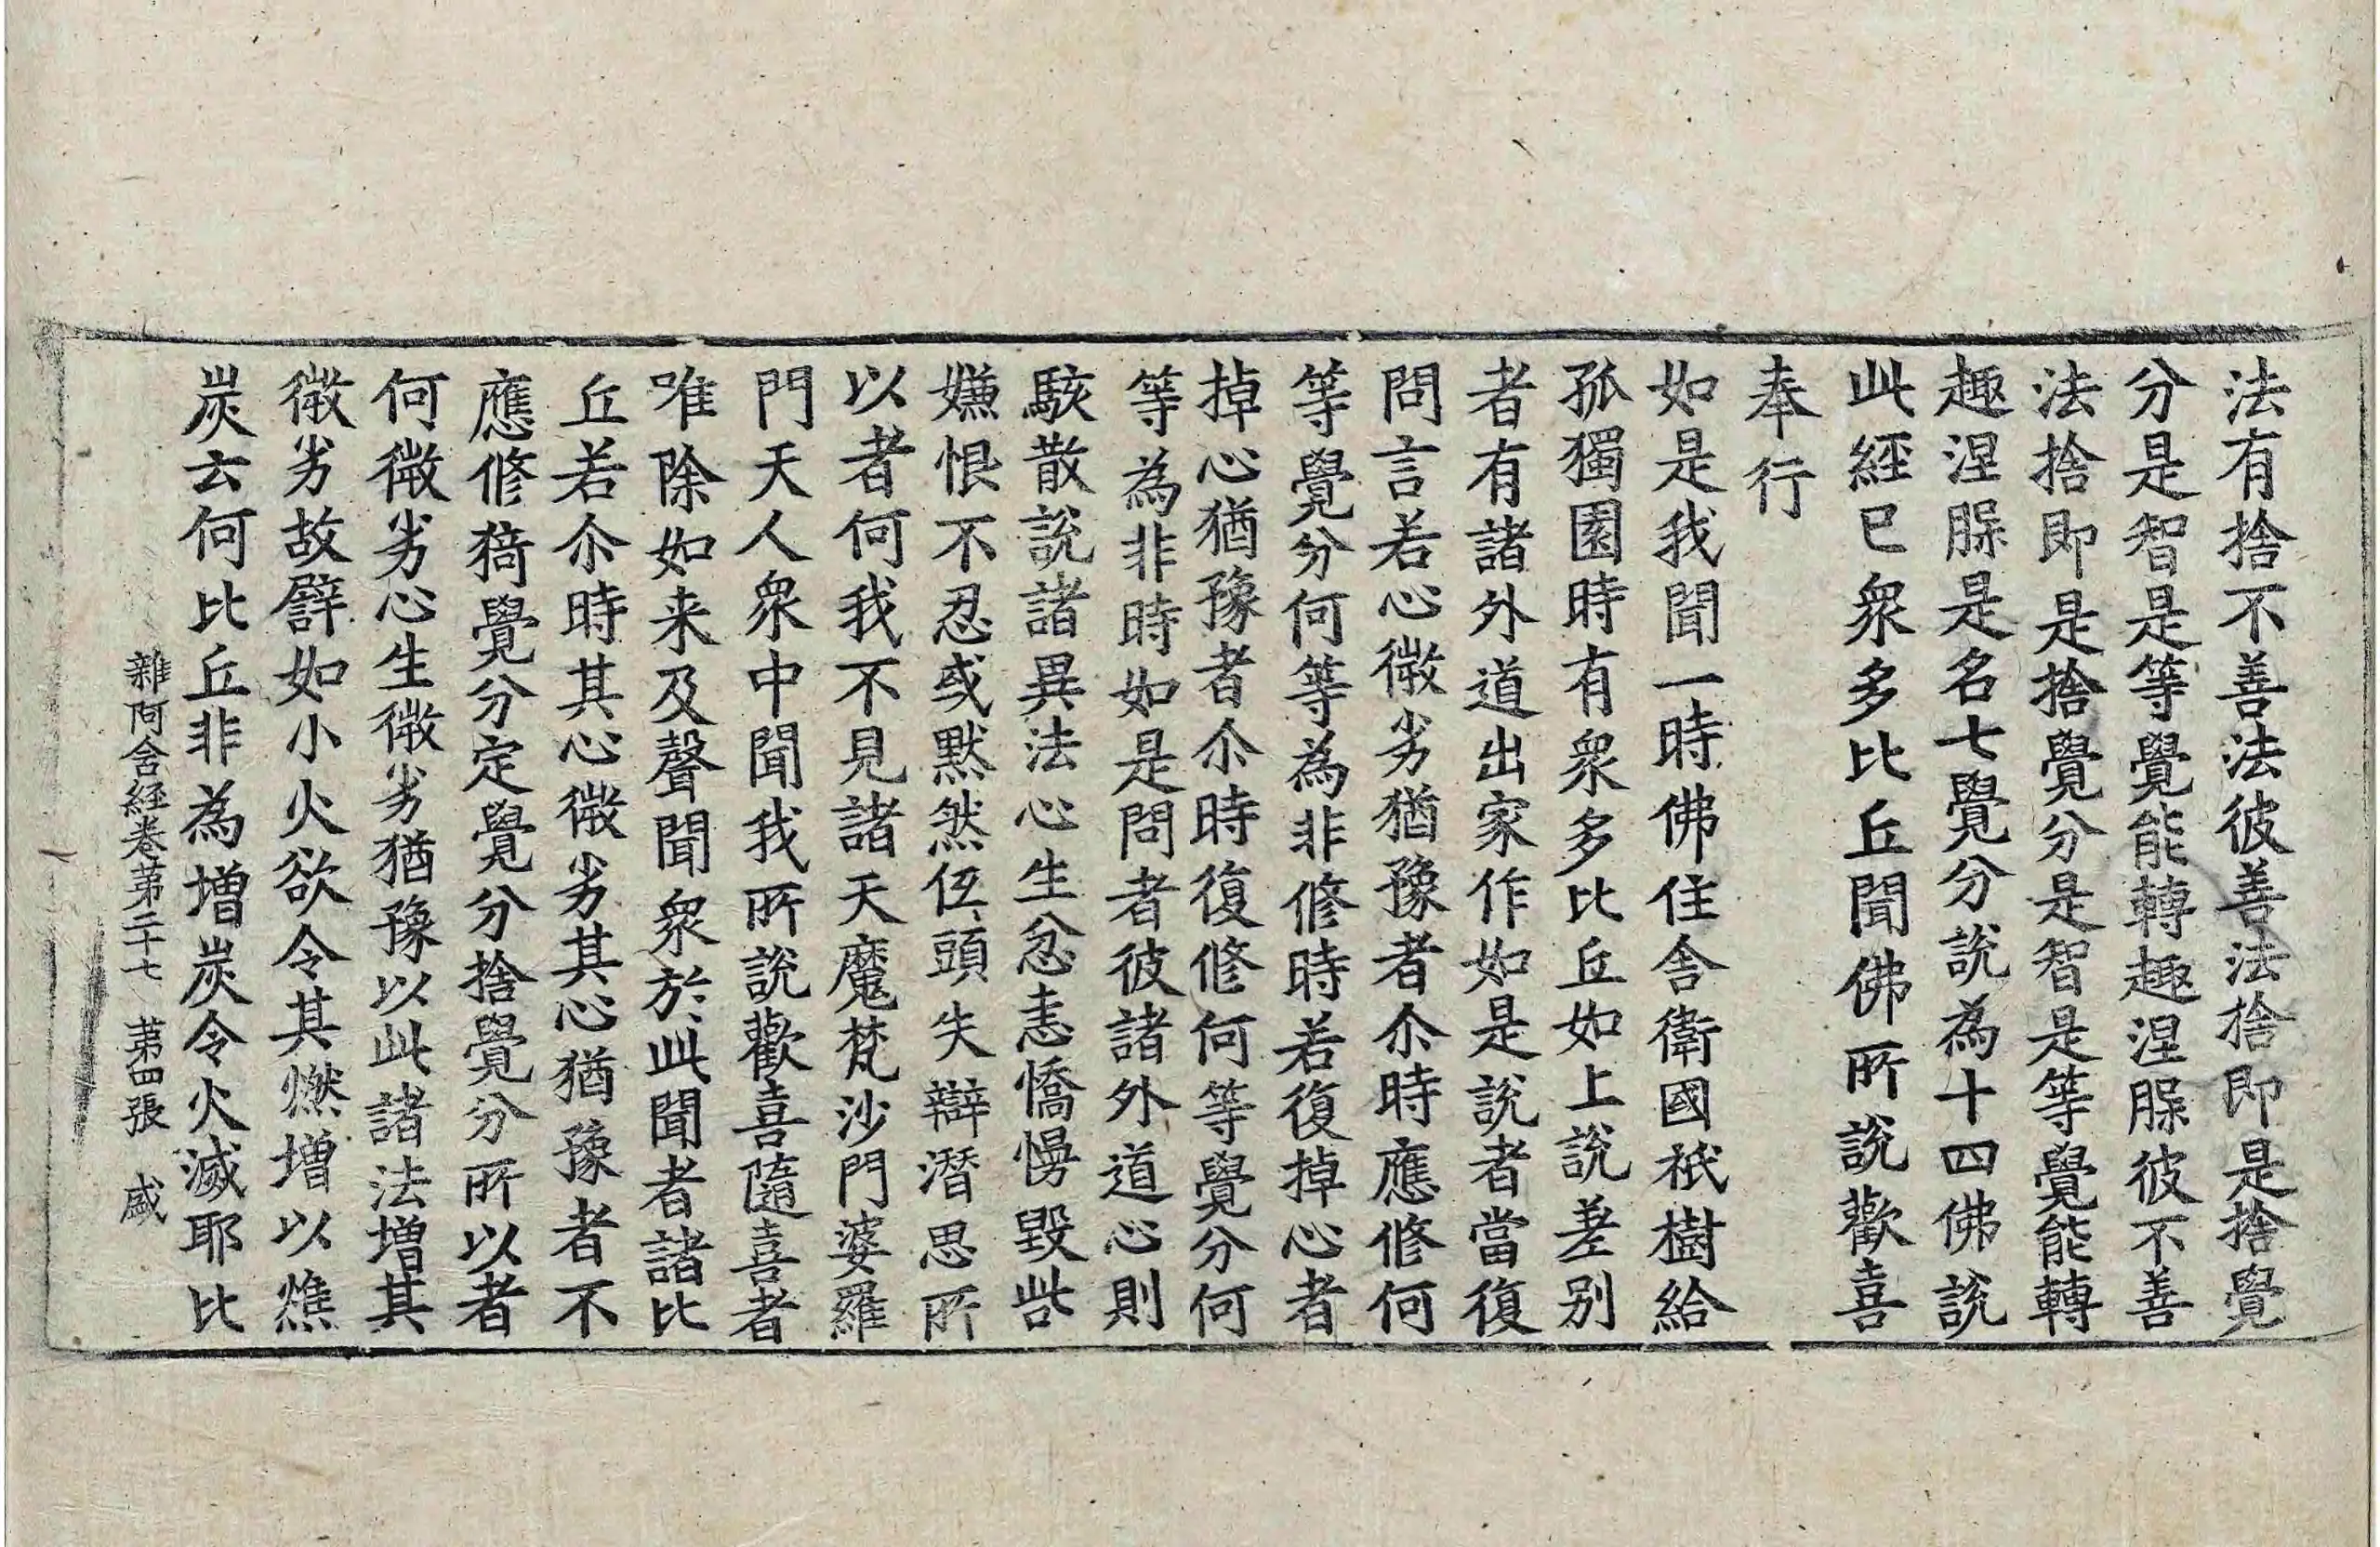 法有捨不善法彼善法捨即是捨覺
分是智是等覺能轉趣涅脲彼不善
法捨即是捨覺分是智是等覺能轉
趣涅脲是名七覺分說為十四佛說
此經已衆多比丘聞佛所說歡喜
奉行
如是我聞一時佛住舍衛國祇樹給
孤獨園時有衆多比丘如上說差別
者有諸外道出家作如是說者當復
問言若心微劣猶豫者尒時應修何
等覺分何等為非修時若復掉心者
掉心猶豫者尒時復修何等覺分何
等為非時如是問者彼諸外道心則
駭散說諸異法心生忿恚憍慢毀呰
嫌恨不忍或默然伍頭失辯潛思所
以者何我不見諸天魔梵沙門婆羅
門天人衆中聞我所說歡喜隨喜者
唯除如来及聲聞衆於此聞者諸比
丘若尒時其心微劣其心猶豫者不
應修猗覺分定覺分捨覺分所以者
何微劣心生微劣猶豫以此諸法增其
微劣故譬如小火欲令其燃增以燋
炭云何比丘非為增炭令火滅耶比
雜阿含経卷第二十七 第四張 感